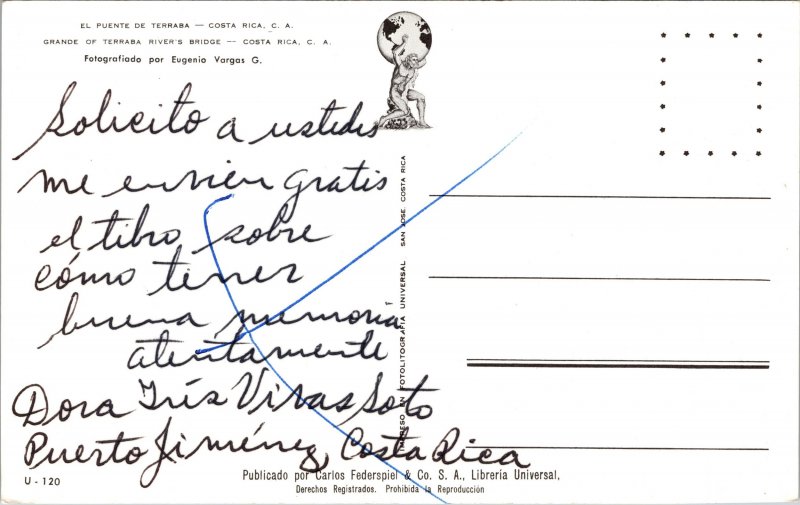 EL PUENTE DE TERRABA — COSTA RICA, C. A.
GRANDE OF TERRABA RIVER'S BRIDGE — COSTA RICA, C. A.
Fotografiado por Eugenio Vargas G.
Solicito a ustedes
me envien gratis
el libro sobre
cómo tener
buena memoria
atentamente
Dora Inés Vivas Soto
Puerto Jiménez, Costa Rica
IMPRESO EN FOTOLITOGRAFIA UNIVERSAL SAN JOSE, COSTA RICA
Publicado por Carlos Federspiel & Co. S. A., Librería Universal,
U - 120
Derechos Registrados. Prohibida la Reproducción